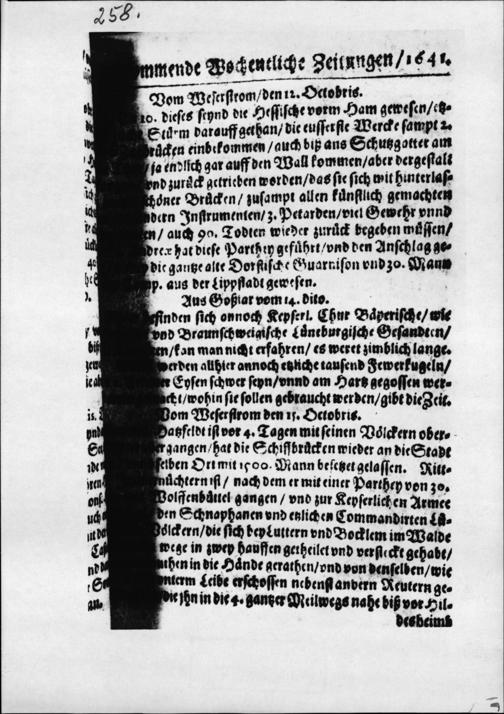 258.
ommende Wochentliche Zeitungen/1641.
Vom Weserstrom/den 12. Octobris.
20. dieses seynd die Hessische vorm Ham gewesen/etz-
Sturm darauff gethan/die eusserste Wercke sampt 2.
rücken einbekommen/auch biß ans Schutzgatter am
/ja endlich gar auff den Wall kommen/aber dergestalt
vnd zurück getrieben worden/das sie sich mit hinterlas-
chöner Brücken/zusampt allen künstlich gemachten
ndern Instrumenten/3. Petarden/viel Gewehr vnnd
en/auch 90. Todten wieder zurück begeben müssen/
hat diese Parthey geführt/vnd den Anschlag ge-
die gantze alte Dorstische Guarnison vnd 30. Mann
p. aus der Lippstadt gewesen.
Aus Goßlar vom 14. dito.
efinden sich annoch Keyserl. Chur Bäyerische/wie
vnd Braunschweigische Lüneburgische Gesandten/
en/kan man nicht erfahren/es weret zimblich lange.
werden allhier annoch etzliche tausend Fewerkugeln/
er Eysen schwer seyn/vnnd am Hartz gegossen wer-
acht/wohin sie sollen gebraucht werden/gibt die Zeit.
Vom Weserstrom den 15. Octobris.
Hatzfeldt ist vor 4. Tagen mit seinen Völckern ober-
ergangen/hat die Schiffbrücken wieder an die Stadt
selben Ort mit 1500. Mann besetzet gelassen. Ritt-
nüchtern ist/nach dem er mit einer Parthey von 20.
Wolffenbüttel gangen/vnd zur Keyserlichen Armee
den Schnaphanen vnd etzlichen Commandirten Lü-
ölckern/die sich bey Luttern vnd Bocklem im Walde
wege in zwey hauffen getheilet vnd versteckt gehabt/
uthen in die Hände gerathen/vnd von denselben/wie
vnterm Leibe erschossen nebenst andern Reutern ge-
die jhn in die 4. gantzer Meilwegs nahe biß vor Hil-
desheimb